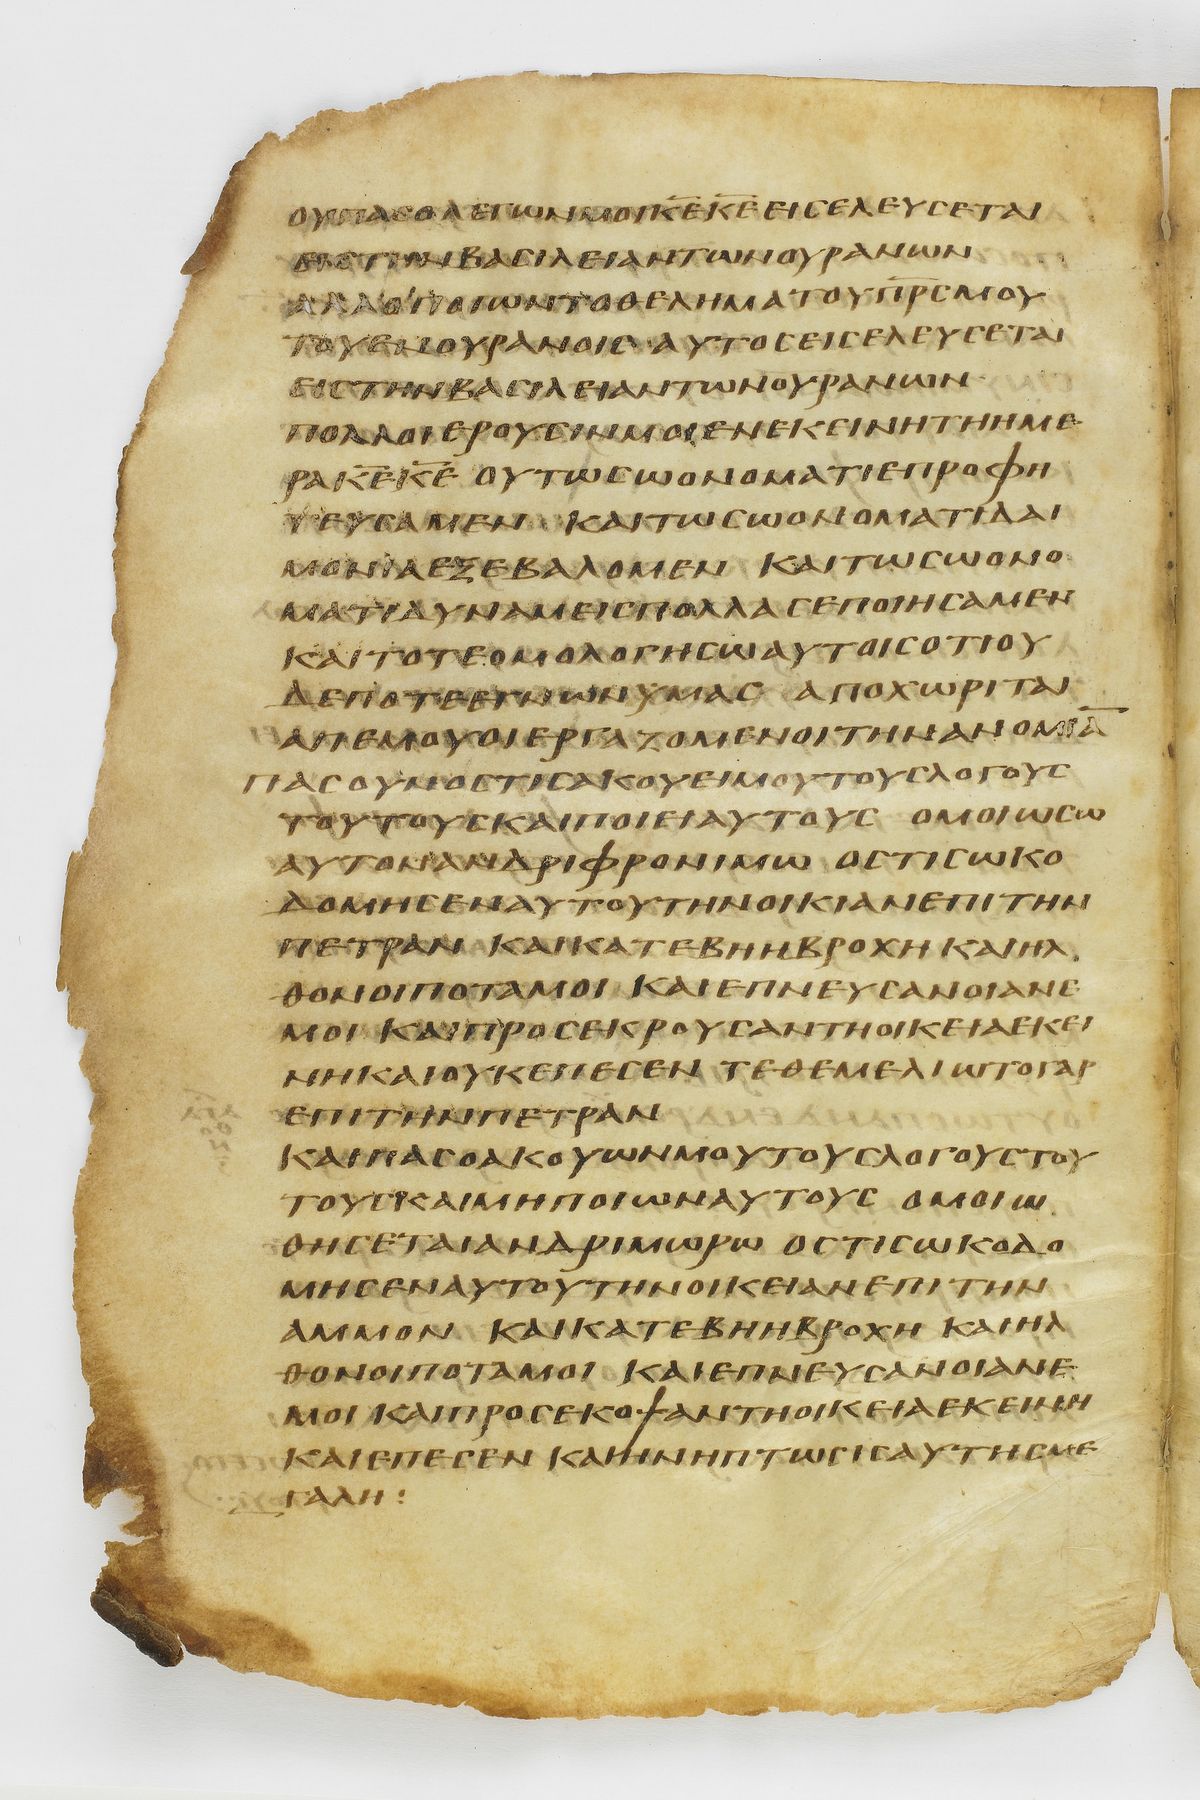 ΟΥΠΑСΟΛΕΓΩΝΜΟΙΚ̅Ε̅Κ̅Ε̅ΕΙСΕΛΕΥСΕΤΑΙ
ΕΙСΤΗΝΒΑСΙΛΕΙΑΝΤΩΝΟΥΡΑΝΩΝ
ΑΛΛΟΠΟΙΩΝΤΟΘΕΛΗΜΑΤΟΥΠ̅Ρ̅С̅ΜΟΥ
ΤΟΥΕΝΟΥΡΑΝΟΙС ΑΥΤΟСΕΙСΕΛΕΥСΕΤΑΙ
ΕΙСΤΗΝΒΑСΙΛΕΙΑΝΤΩΝΟΥΡΑΝΩΝ
ΠΟΛΛΟΙΕΡΟΥСΙΝΜΟΙΕΝΕΚСΙΝΗΤΗΗΜΕ
ΡΑΚ̅Ε̅Κ̅Ε̅ ΟΥΤΩСΩΟΝΟΜΑΤΙΕΠΡΟΦΗ
ΤΕΥСΑΜΕΝ ΚΑΙΤΩСΩΟΝΟΜΑΤΙΔΑΙ
ΜΟΝΙΑΕΞΕΒΑΛΟΜΕΝ ΚΑΙΤΩСΩΟΝΟ
ΜΑΤΙΔΥΝΑΜΕΙСΠΟΛΛΑСΕΠΟΙΗСΑΜΕΝ
ΚΑΙΤΟΤΕΟΜΟΛΟΓΗСΩΑΥΤΟΙСΟΤΙΟΥ
ΔΕΠΟΤΕΕΓΝΩΝΥΜΑС ΑΠΟΧΩΡΙΤΑΙ
ΑΠΕΜΟΥΟΙΕΡΓΑΖΟΜΕΝΟΙΤΗΝΑΝΟΜΙΑ̅
ΠΑСΟΥΝΟСΤΙСΑΚΟΥΕΙΜΟΥΤΟΥСΛΟΓΟΥС
ΤΟΥΤΟΥСΚΑΙΠΟΙΕΙΑΥΤΟΥС ΟΜΟΙΩСΩ
ΑΥΤΟΝΑΝΔΡΙΦΡΟΝΙΜΩ ΟСΤΙСΩΚΟ
ΔΟΜΗСΕΝΑΥΤΟΥΤΗΝΟΙΚΙΑΝΕΠΙΤΗΝ
ΠΕΤΡΑΝ ΚΑΙΚΑΤΕΒΗΗΒΡΟΧΗ ΚΑΙΗΛ
ΘΟΝΟΙΠΟΤΑΜΟΙ ΚΑΙΕΠΝΕΥСΑΝΟΙΑΝΕ
ΜΟΙ ΚΑΙΠΡΟСΕΚΡΟΥСΑΝΤΗΟΙΚΕΙΑΕΚΕΙ
ΝΗΚΑΙΟΥΚΕΠΕСΕΝ ΤΕΘΕΜΕΛΙΩΤΟΓΑΡ
ΕΠΙΤΗΝΠΕΤΡΑΝ
ΚΑΙΠΑСΟΑΚΟΥΩΝΜΟΥΤΟΥСΛΟΓΟΥСΤΟΥ
ΤΟΥСΚΑΙΜΗΠΟΙΩΝΑΥΤΟΥС ΟΜΟΙΩ
ΘΗСΕΤΑΙΑΝΔΡΙΜΩΡΩ ΟСΤΙСΩΚΟΔΟ
ΜΗСΕΝΑΥΤΟΥΤΗΝΟΙΚΕΙΑΝΕΠΙΤΗΝ
ΑΜΜΟΝ ΚΑΙΚΑΤΕΒΗΗΒΡΟΧΗ ΚΑΙΗΛ
ΘΟΝΟΙΠΟΤΑΜΟΙ ΚΑΙΕΠΝΕΥСΑΝΟΙΑΝΕ
ΜΟΙ ΚΑΙΠΡΟСΕΚΟΨΑΝΤΗΟΙΚΕΙΑΕΚΕΙΝΗ
ΚΑΙΕΠΕСΕΝ ΚΑΙΗΝΗΠΤΩСΙСΑΥΤΗСΜΕ
ΓΑΛΗ: